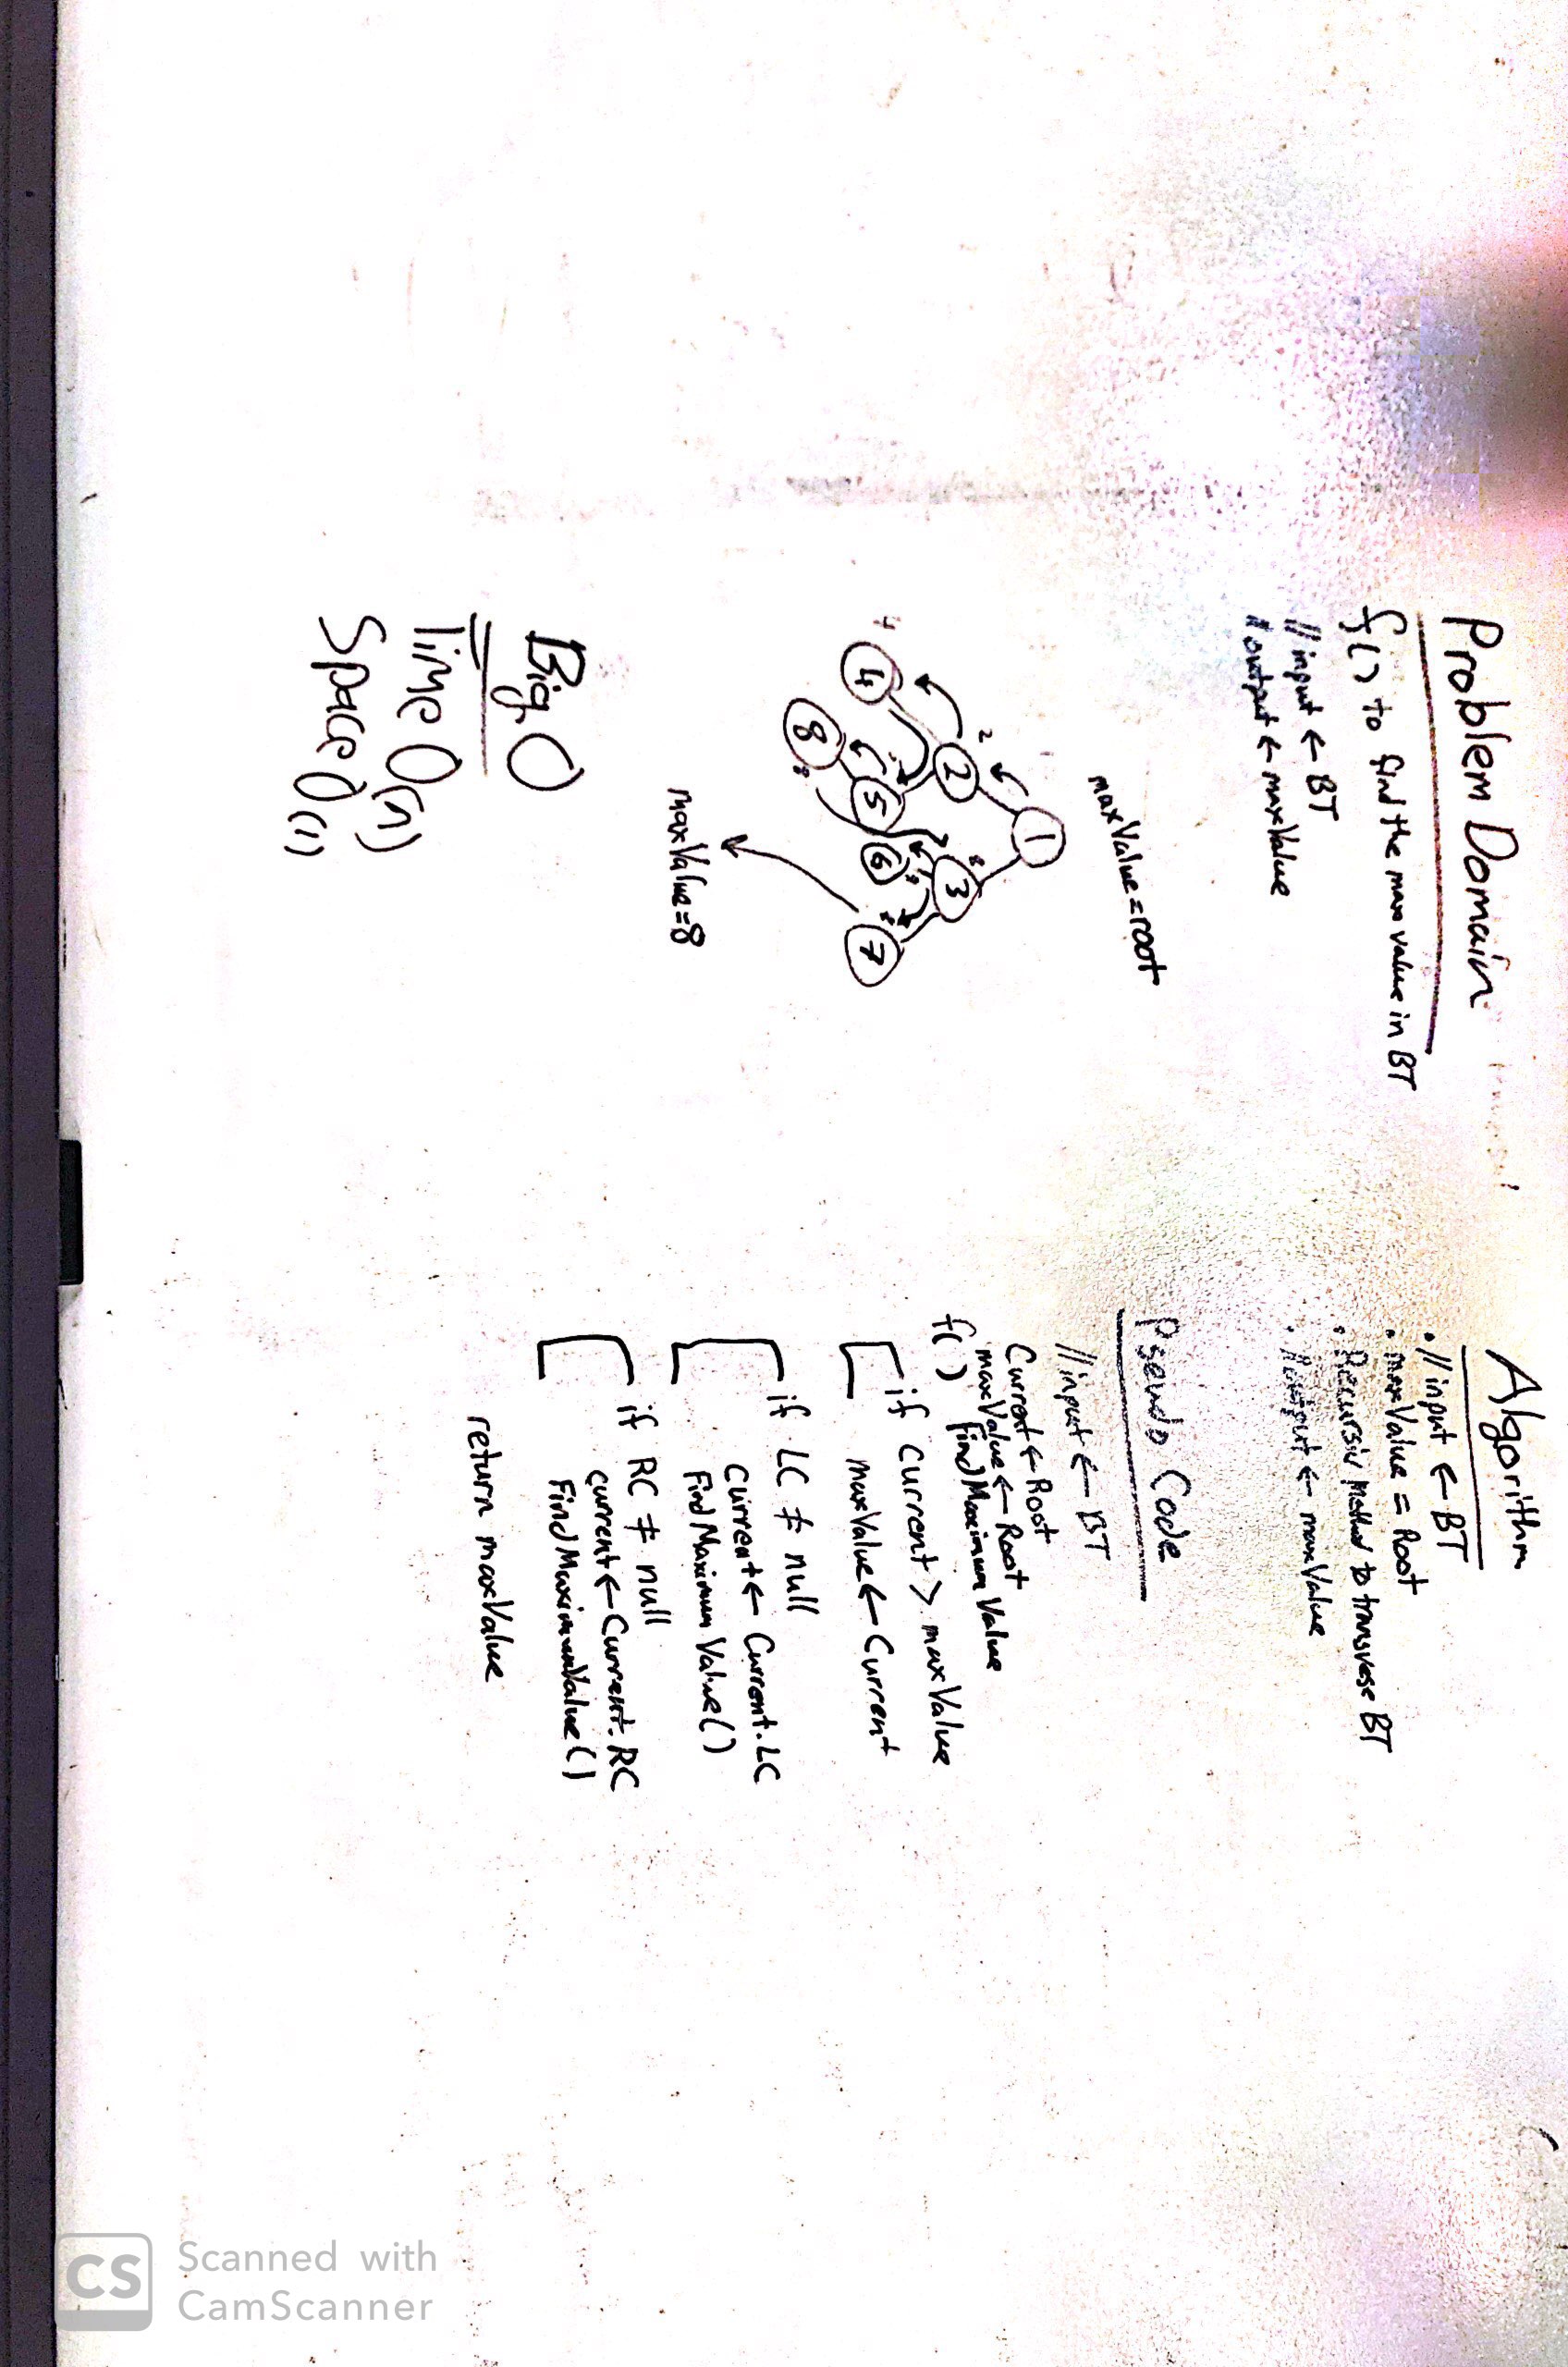 Problem Domain
f() to find the max value in BT
//input ← BT
//output ← maxValue
maxValue=root
1
2
2
3
8
4
4
5
6
7
8
8
maxValue=8
Big O
Time O(n)
Space O(1)
Algorithm
• //input ← BT
• maxValue = Root
• Recursiv Method to transvese BT
• //output ← maxValue
Pseudo Code
//input ← BT
Current ← Root
maxValue ← Root
f() FindMaximumValue
if Current > maxValue
maxValue ← Current
if LC ≠ null
Current ← Current.LC
FindMaximumValue()
if RC ≠ null
current ← Current.RC
FindMaximumValue()
return maxValue
CS Scanned with
CamScanner